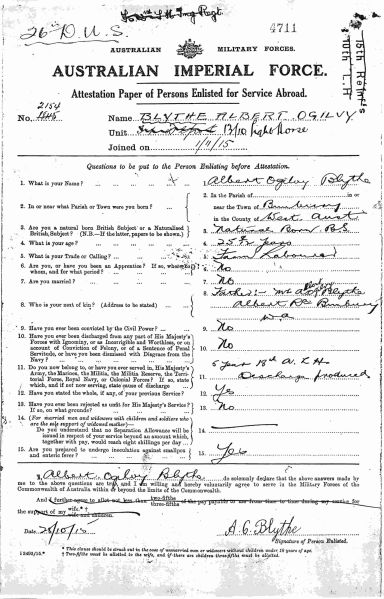 26 D.U.S.
4711
AUSTRALIAN MILITARY FORCES.
AUSTRALIAN IMPERIAL FORCE.
Attestation Paper of Persons Enlisted for Service Abroad.
15th Reinfts
10th L.H
No. 2154
Name BLYTHE ALBERT OGILVY
Unit B/10 Light Horse
Joined on 1/11/15
Questions to be put to the Person Enlisting before Attestation.
1. What is your Name? 1 Albert Ogilvy Blythe
2. In or near what Parish or Town were you born? 2 In the Parish of in or
near the Town of Bunbury
in the County of West Aust
3. Are you a natural born British Subject or a Naturalised
British Subject? (N.B.—If the latter, papers to be shown.) 3 Natural Born B.S.
4. What is your age? 4
5. What is your Trade or Calling? 5 Farm Labourer
6. Are you, or have you been an Apprentice? If so, where, to
whom, and for what period? 6 No
7. Are you married? 7 No
8. Who is your next of kin? (Address to be stated) 8 Father:- Mr Blythe
Albert Rd Bunbury
W.A
9. Have you ever been convicted by the Civil Power? 9 No
10. Have you ever been discharged from any part of His Majesty's
Forces with Ignominy, or as Incorrigible and Worthless, or on
account of Conviction of Felony, or of a Sentence of Penal
Servitude, or have you been dismissed with Disgrace from the
Navy? 10 No
11. Do you now belong to, or have you ever served in, His Majesty's
Army, the Marines, the Militia, the Militia Reserve, the Territorial
Force, Royal Navy, or Colonial Forces? If so, state
which, and if not now serving, state cause of discharge 11 A.L.H
Discharge produced
12. Have you stated the whole, if any, of your previous Service? 12 Yes
13. Have you ever been rejected as unfit for His Majesty's Service?
If so, on what grounds? 13 No
14. (For married men and widowers with children and soldiers who
are the sole support of widowed mother)—
Do you understand that no Separation Allowance will be
issued in respect of your service beyond an amount which,
together with pay, would reach eight shillings per day? 14
15. Are you prepared to undergo inoculation against smallpox
and enteric fever? 15 Yes
I, Albert Ogilvy Blythe do solemnly declare that the above answers made by
me to the above questions are true, and I am willing and hereby voluntarily agree to serve in the Military Forces of the
Commonwealth of Australia within or beyond the limits of the Commonwealth.
And I further agree to allot not less than two-fifths three-fifths of the pay payable to me from time to time during my service for
the support of my wife*† wife and children
Date 26/10/15
Blythe
Signature of Person Enlisted.
* This clause should be struck out in the case of unmarried men or widowers without children under 18 years of age.
† Two-fifths must be allotted to the wife, and if there are children three-fifths must be allotted.